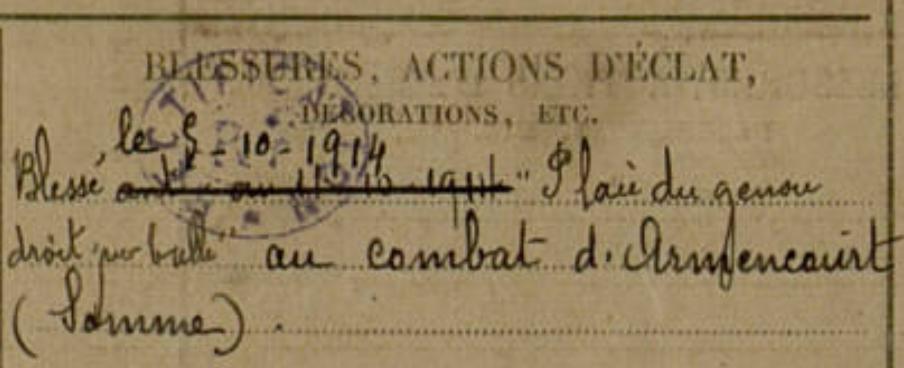 BLESSURES, ACTIONS D'ÉCLAT,
DÉCORATIONS, ETC.
le 5-10-1914
Blessé ant. au 11-10-1914 "Plaie du genou
droit par balle" au combat d'Armencourt
(Somme).